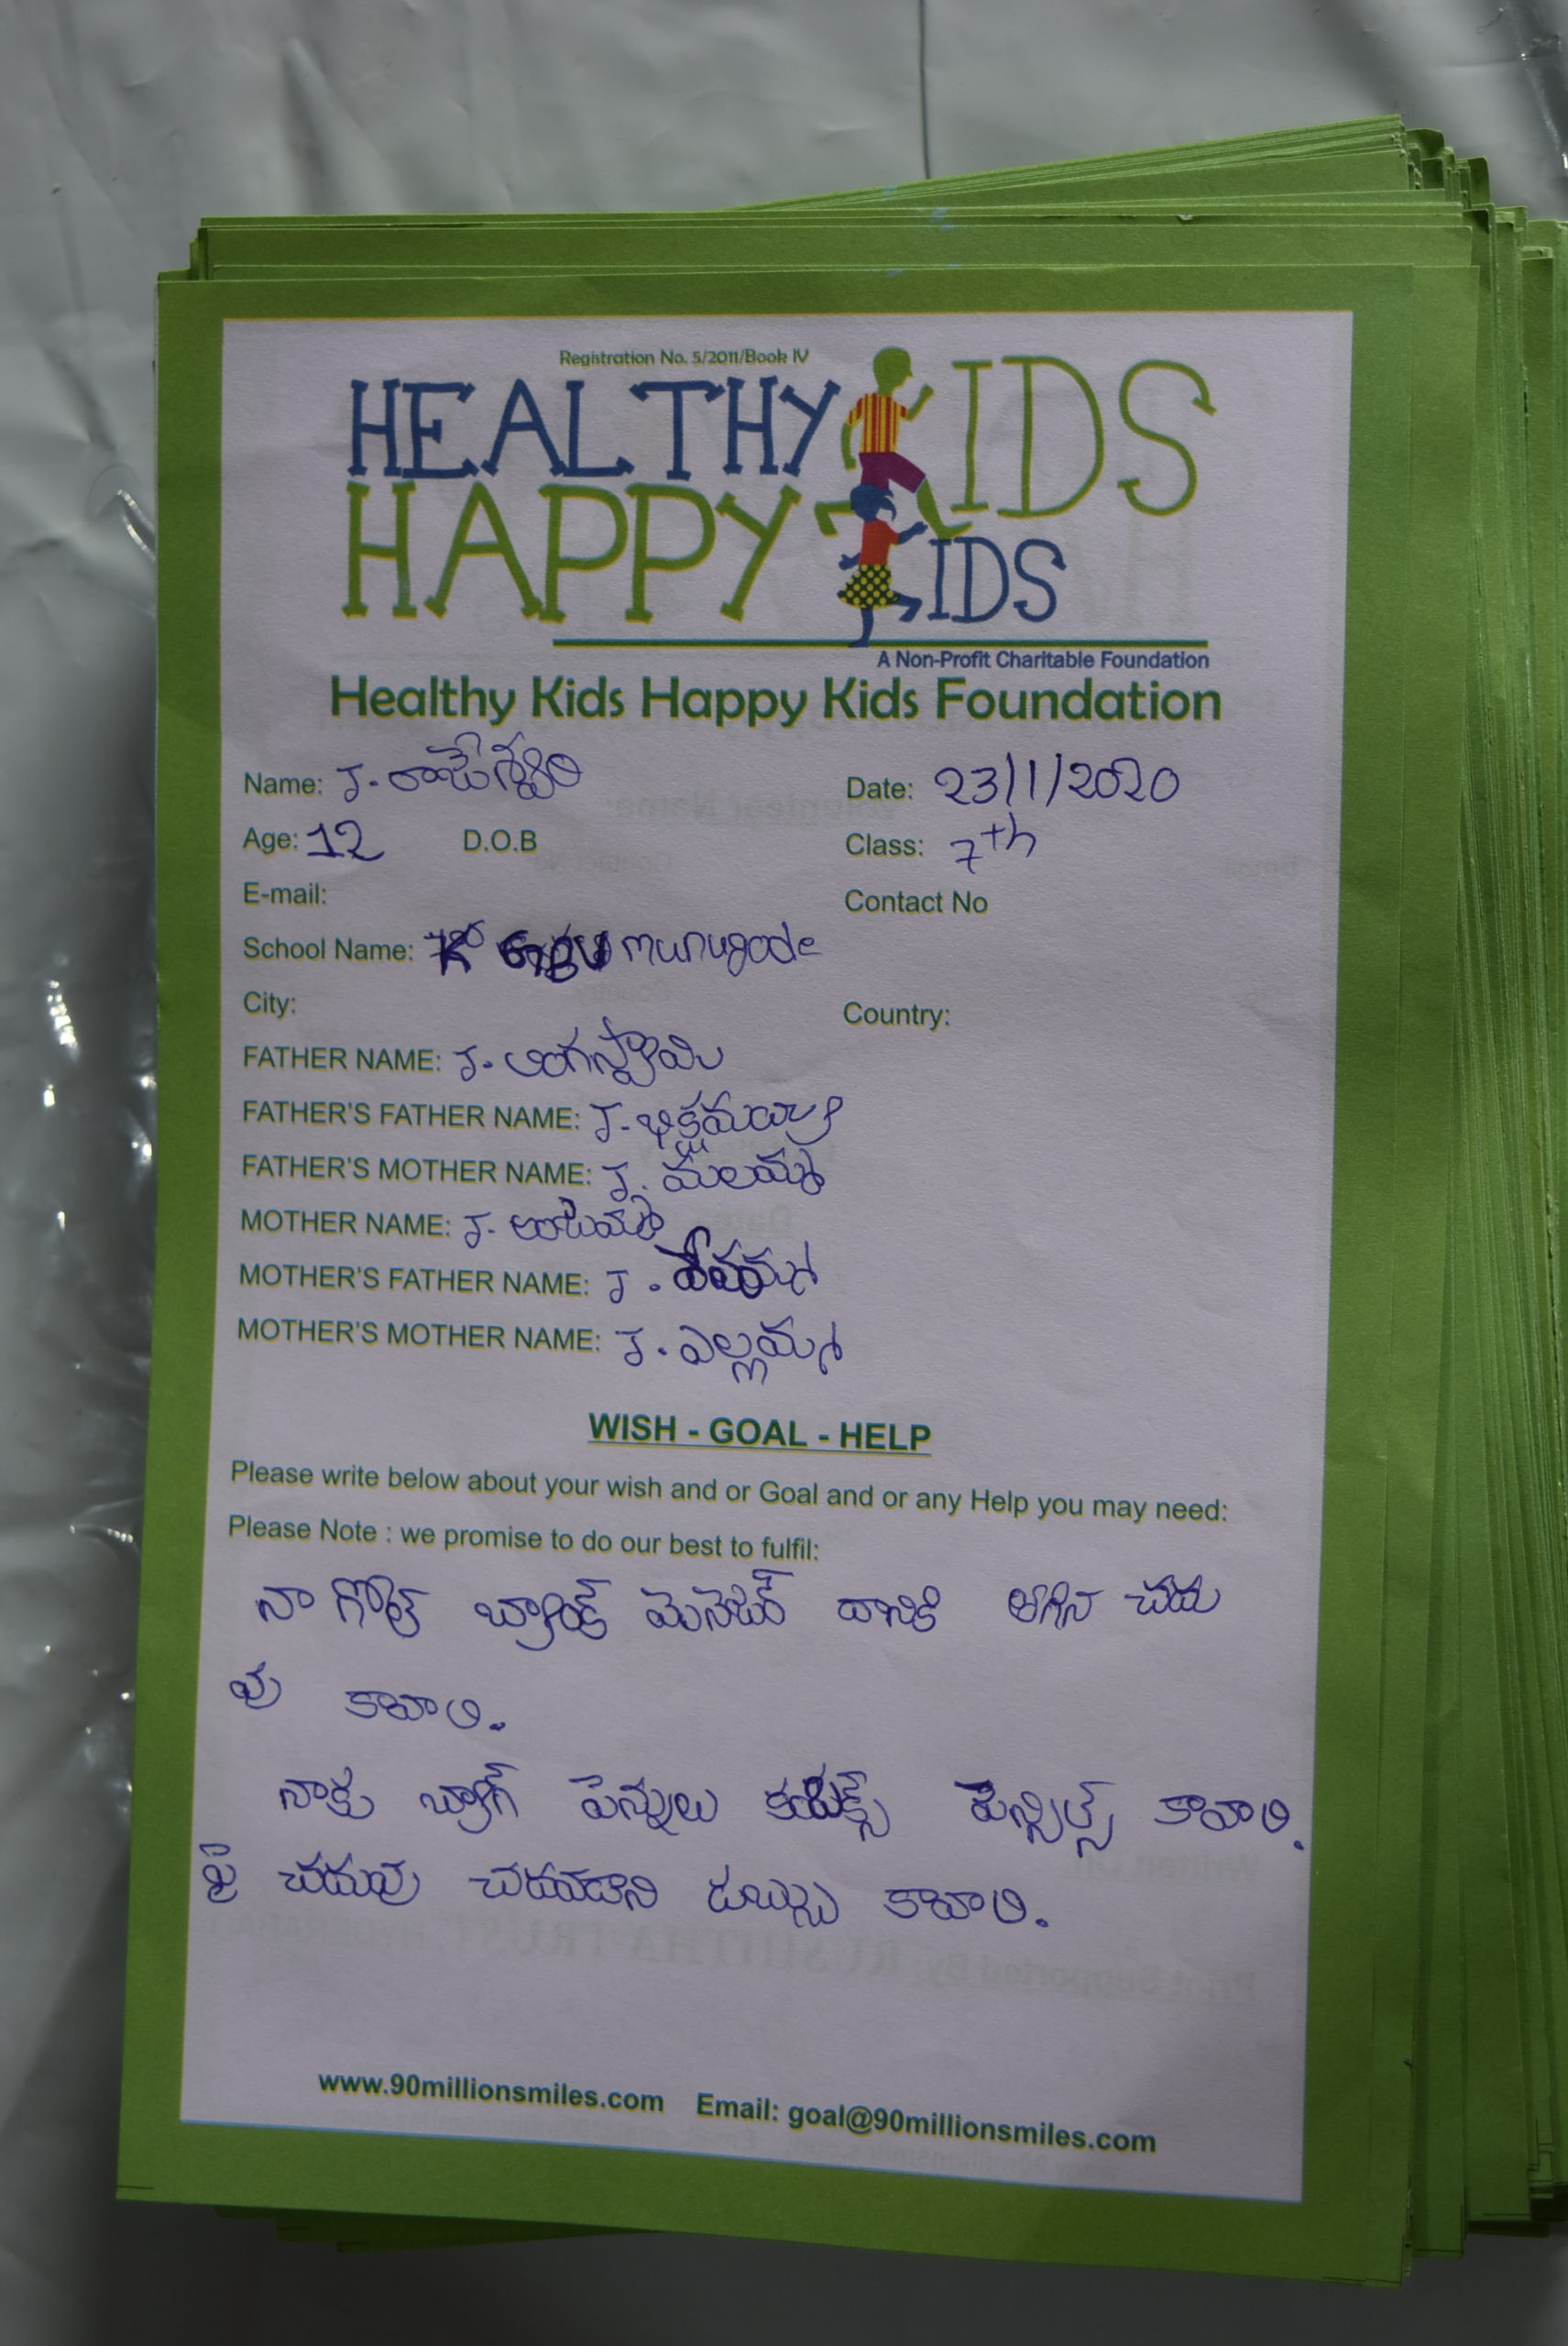 Registration No. 5/2011/Book IV
HEALTHY KIDS
HAPPY KIDS
A Non-Profit Charitable Foundation
Healthy Kids Happy Kids Foundation
Name: J. రాజేశ్వరి Date: 23/1/2020
Age: 12 D.O.B Class: 7th
E-mail: Contact No
School Name: munugode
City: Country:
FATHER NAME: J. లింగస్వామి
FATHER'S FATHER NAME: J. భిక్షమయ్య
FATHER'S MOTHER NAME: J. మలమ్మ
MOTHER NAME: J.
MOTHER'S FATHER NAME: J.
MOTHER'S MOTHER NAME: J. ఎల్లమ్మ
WISH - GOAL - HELP
Please write below about your wish and or Goal and or any Help you may need:
Please Note : we promise to do our best to fulfil:
నా గోల్ బ్యాంక్ మెనెజర్ దానికి తగిన చదు
వు కావాలి.
నాకు బ్యాగ్ పెన్నులు పెన్సిల్స్ కావాలి.
పై చదువు చదవడాని డబ్బు కావాలి.
www.90millionsmiles.com Email: goal@90millionsmiles.com